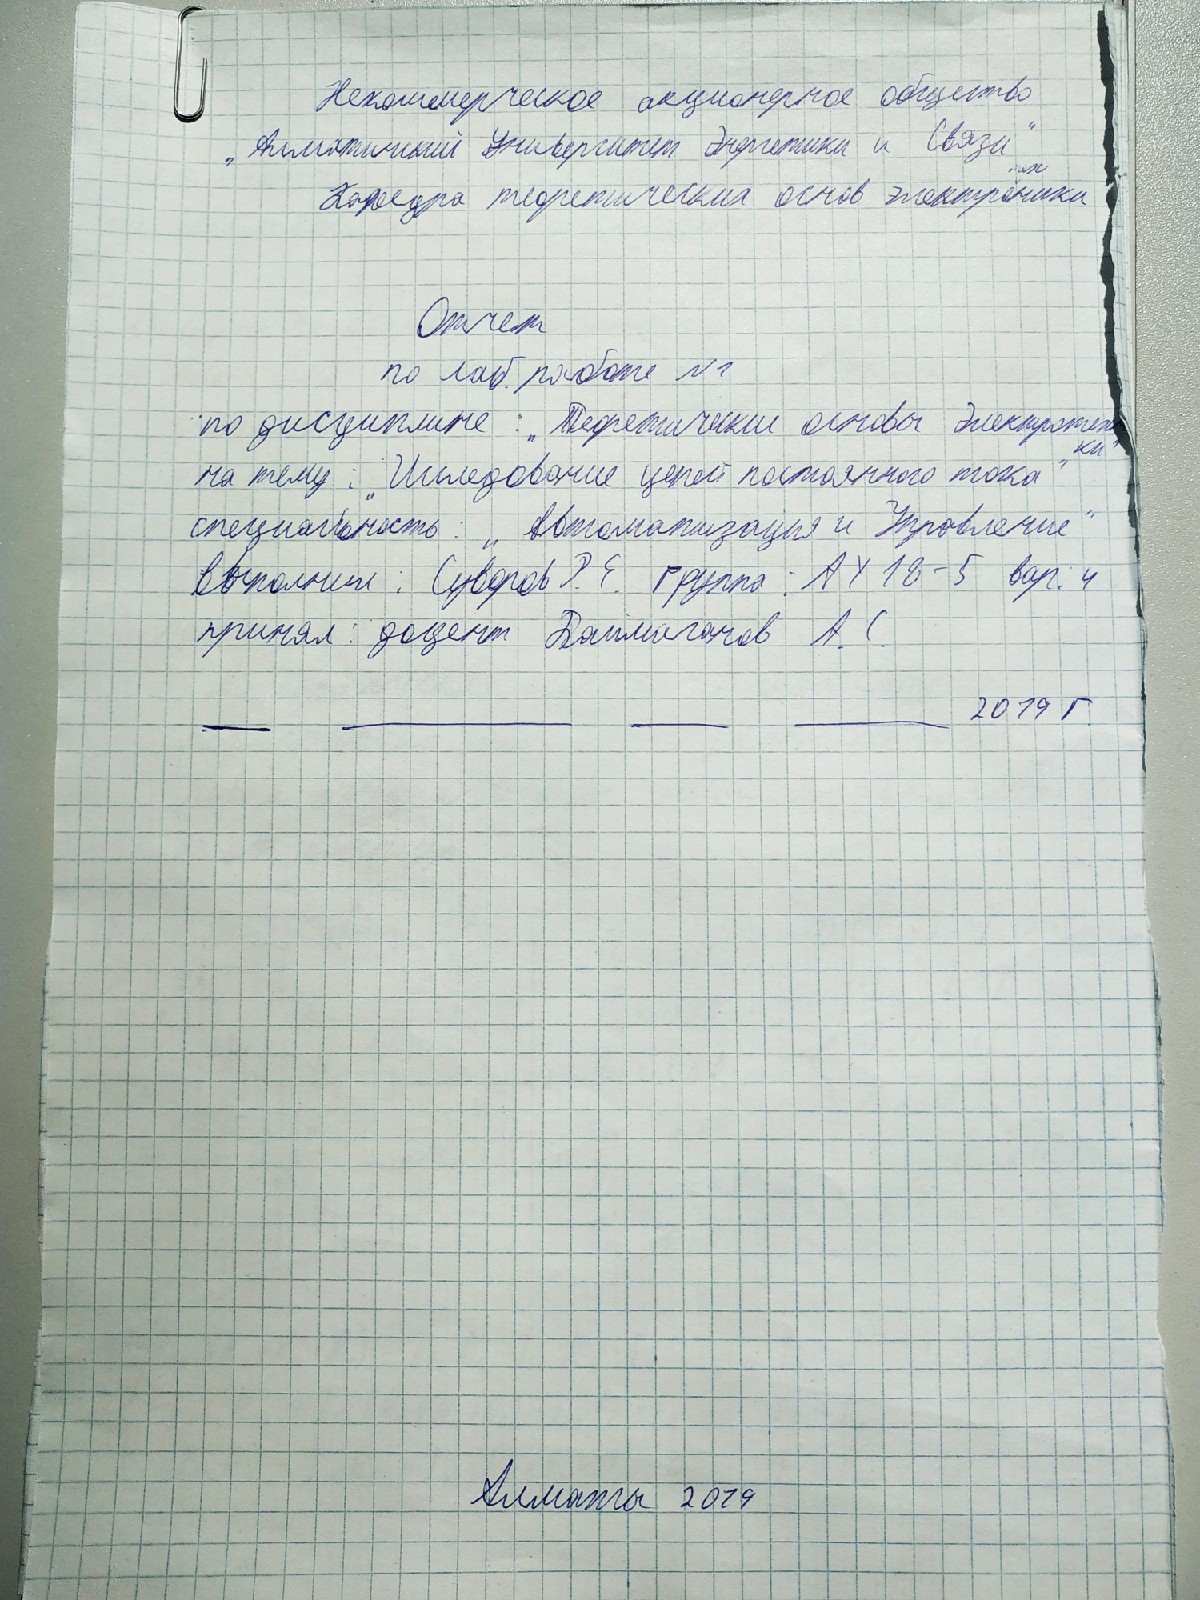 Некоммерческое акционерное общество
„Алматинский Университет Энергетики и Связи"
Кафедра теоретических основ электроники
Отчет
по лаб. работе №1
по дисциплине: „Теоретические основы Электротехни
ки"
на тему: „Исследование цепей постоянного тока"
специальность: „Автоматизация и Управление"
выполнил: Суворов Р. Е. группа: АУ 18-5 вар: 4
принял: доцент Баймаганов А. С.
2019 г
Алматы 2019